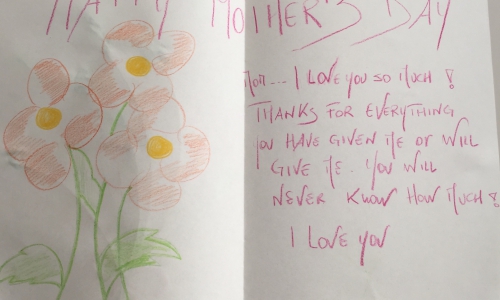 HAPPY MOTHER'S DAY
MOM... I LOVE YOU SO MUCH !
THANKS FOR EVERYTHING
YOU HAVE GIVEN ME OR WILL
GIVE ME. YOU WILL
NEVER KNOW HOW MUCH !
I LOVE YOU